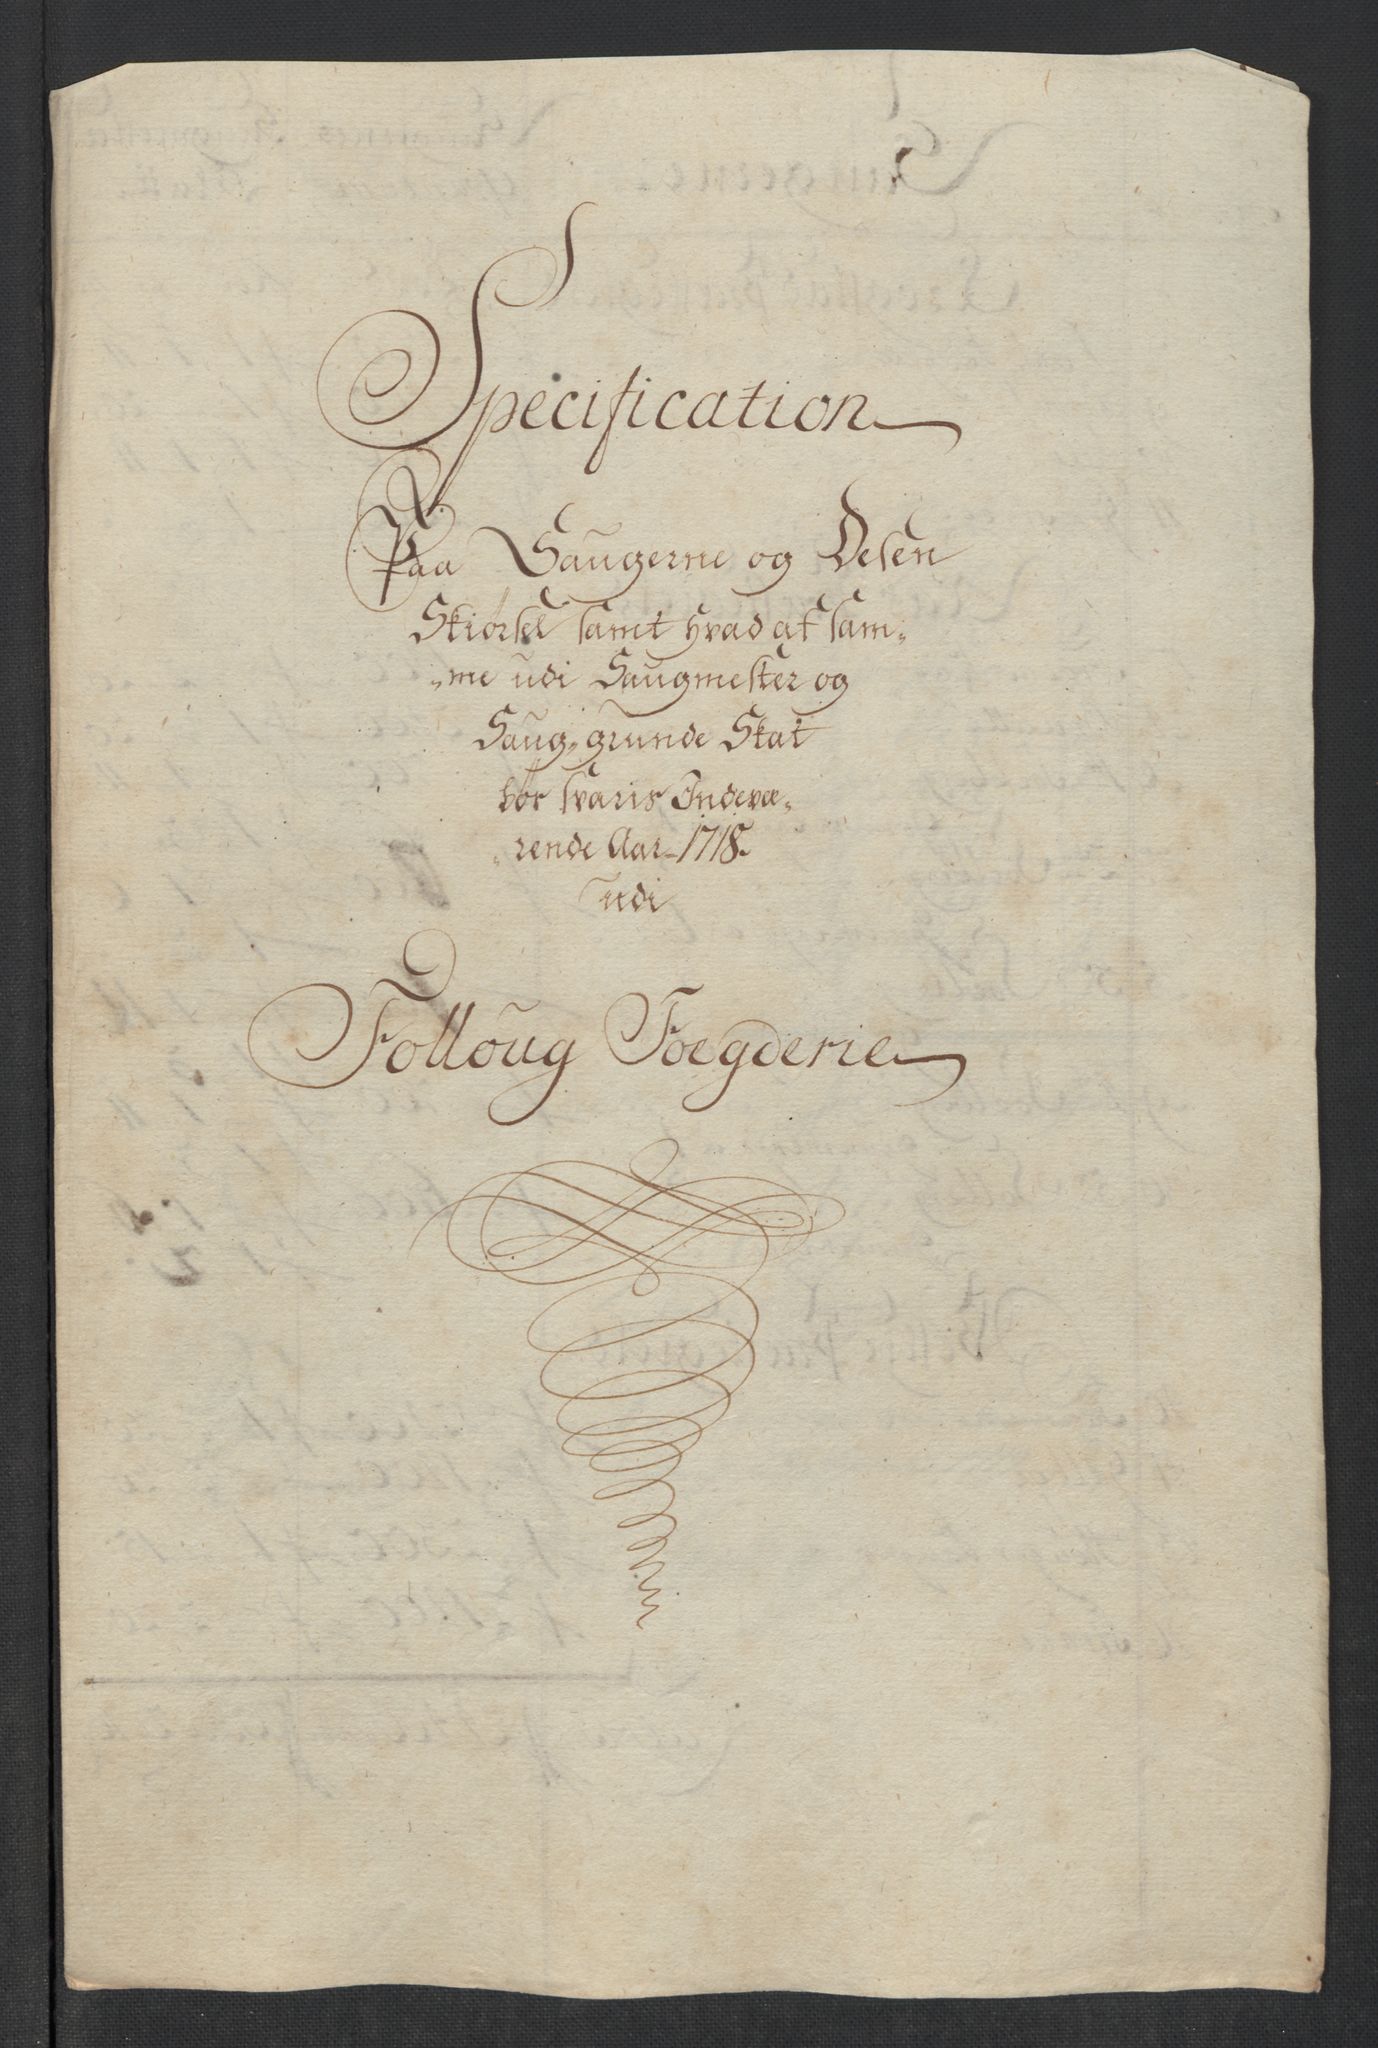 Specification
Paa Saugerne og Desen
Skiørsel samt hvad af sam⸗
⸗me udi Saugmester og
Saug⸗grunde Skat
bør svaris Indevæ⸗
⸗rende Aar 1718.
udi
Folloug Foegderie